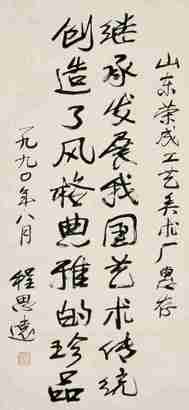 山东荣成工艺美术厂惠存
继承发展我国艺术传统
创造了风格典雅的珍品
一九九〇年八月
程思远